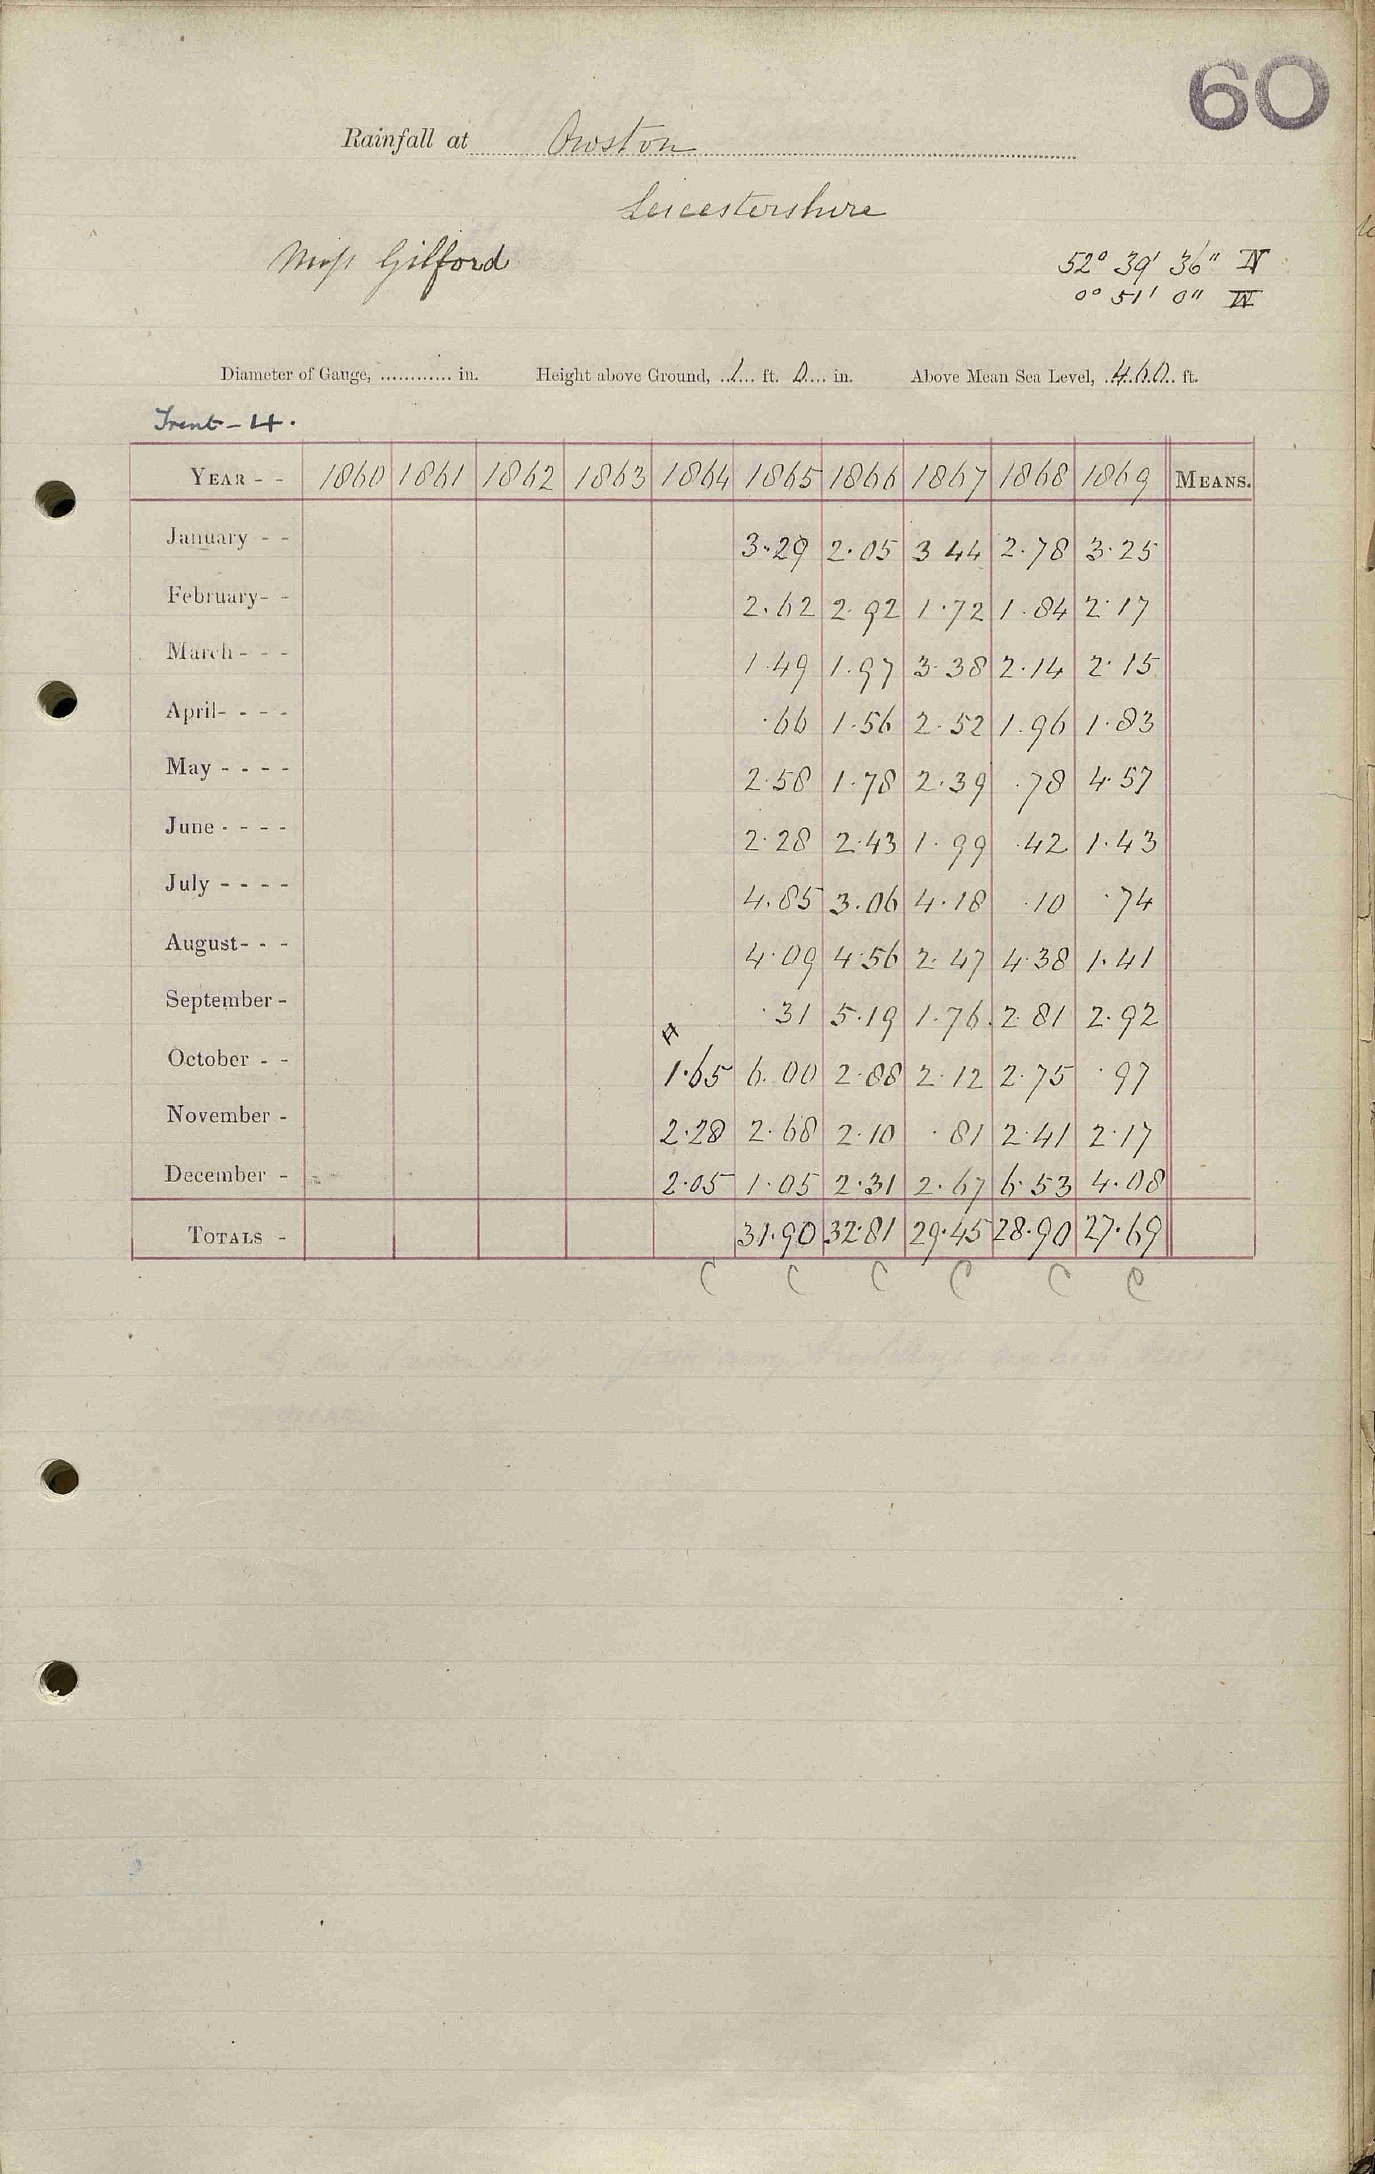 60
Rainfall at Owston
Leicestershire
Miss Gilford
52° 39' 36" N
0° 51' 0" W
Diameter of Gauge, ............ in. Height above Ground, 1 ft. 0 in. Above Mean Sea Level, 460 ft.
Trent - 4.
YEAR - - 1860 1861 1862 1863 1864 1865 1866 1867 1868 1869 MEANS.
January - - 3.29 2.05 3 44 2.78 3.25
February - - 2.62 2.92 1.72 1.84 2.17
March - - - 1.49 1.97 3.38 2.14 2.15
April - - - - .66 1.56 2.52 1.96 1.83
May - - - - 2.58 1.78 2.39 .78 4.57
June - - - - 2.28 2.43 1.99 .42 1.43
July - - - - 4.85 3.06 4.18 .10 .74
August - - - 4.09 4.56 2.47 4.38 1.41
September - .31 5.19 1.76 2.81 2.92
October - - 1.65 6.00 2.88 2.12 2.75 .97
November - 2.28 2.68 2.10 .81 2.41 2.17
December - 2.05 1.05 2.31 2.67 6.53 4.08
TOTALS - 31.90 32.81 29.45 28.90 27.69
C C C C C C